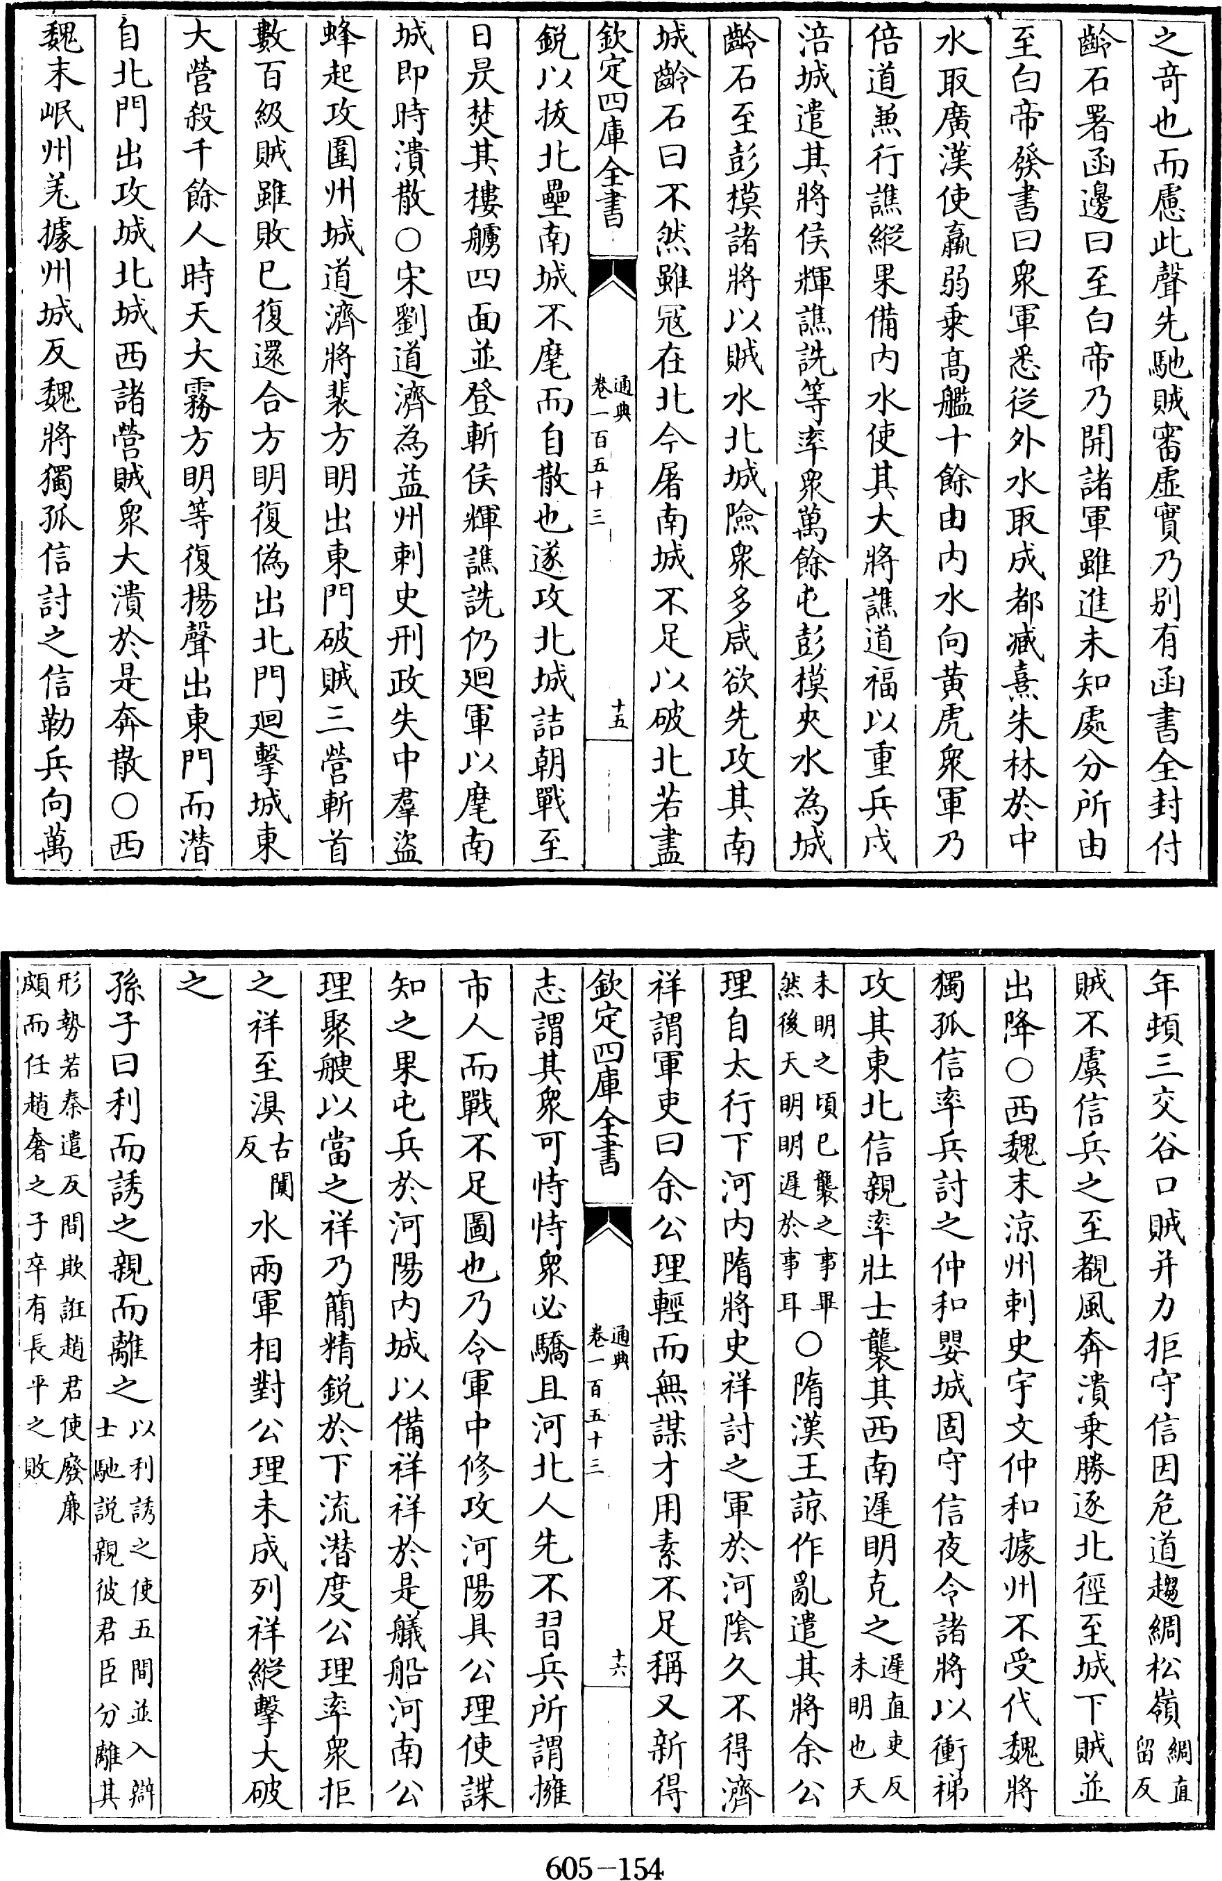 之奇也而慮此聲先馳賊審虛實乃别有函書全封付
齡石署函邊曰至白帝乃開諸軍雖進未知處分所由
至白帝發書曰衆軍悉從外水取成都臧熹朱林於中
水取廣漢使羸弱乗髙艦十餘由内水向黄虎衆軍乃
倍道兼行譙縱果備内水使其大將譙道福以重兵戍
涪城遣其將侯輝譙詵等率衆萬餘屯彭模夾水為城
齡石至彭模諸將以賊水北城險衆多咸欲先攻其南
城齡石曰不然雖冦在北今屠南城不足以破北若盡
欽定四庫全書
通典
卷一百五十三
十五
鋭以拔北壘南城不麾而自散也遂攻北城詰朝戰至
日昃焚其樓艣四面並登斬侯輝譙詵仍廻軍以麾南
城即時潰散○宋劉道濟為益州刺史刑政失中羣盜
蜂起攻圍州城道濟將裴方明出東門破賊三營斬首
數百級賊雖敗已復還合方明復偽出北門廻擊城東
大營殺千餘人時天大霧方明等復揚聲出東門而潜
自北門出攻城北城西諸營賊衆大潰於是奔散○西
魏末岷州羌據州城反魏將獨孤信討之信勒兵向萬
年頓三交谷口賊并力拒守信因危道趨綢松嶺綢直留反
賊不虞信兵之至覩風奔潰乗勝逐北徑至城下賊並
出降○西魏末涼州刺史宇文仲和據州不受代魏將
獨孤信率兵討之仲和嬰城固守信夜令諸將以衝梯
攻其東北信親率壯士襲其西南遲明克之遲直吏反未明也天
未明之頃已襲之事畢然後天明明遲於事耳○隋漢王諒作亂遣其將余公
理自太行下河内隋將史祥討之軍於河陰久不得濟
祥謂軍吏曰余公理輕而無謀才用素不足稱又新得
欽定四庫全書
通典
卷一百五十三
十六
志謂其衆可恃恃衆必驕且河北人先不習兵所謂擁
市人而戰不足圖也乃令軍中修攻河陽具公理使諜
知之果屯兵於河陽内城以備祥祥於是艤船河南公
理聚艘以當之祥乃簡精鋭於下流潜度公理率衆拒
之祥至湨古闃反水兩軍相對公理未成列祥縱擊大破
之
孫子曰利而誘之親而離之以利誘之使五間並入辯士馳説親彼君臣分離其
形勢若秦遣反間欺誑趙君使廢廉頗而任趙奢之子卒有長平之敗
605-154